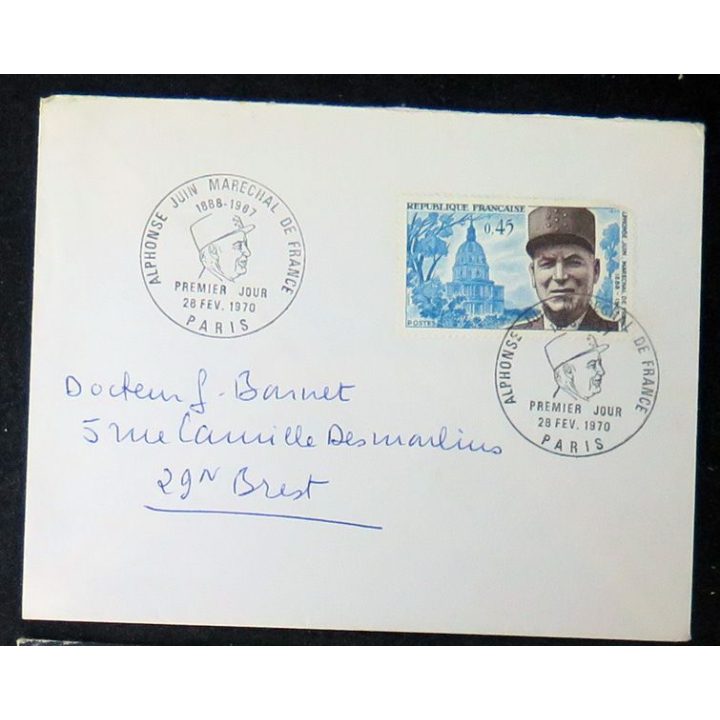 ALPHONSE JUIN MARECHAL DE FRANCE
1888-1967
PREMIER JOUR
28 FEV. 1970
PARIS
REPUBLIQUE FRANCAISE
0,45
ALPHONSE JUIN MARECHAL DE FRANCE
1888-
POSTES
ALPHONSE DE FRANCE
PREMIER JOUR
28 FEV. 1970
PARIS
Docteur J. Barnet
5 rue Camille Desmoulins
29N Brest